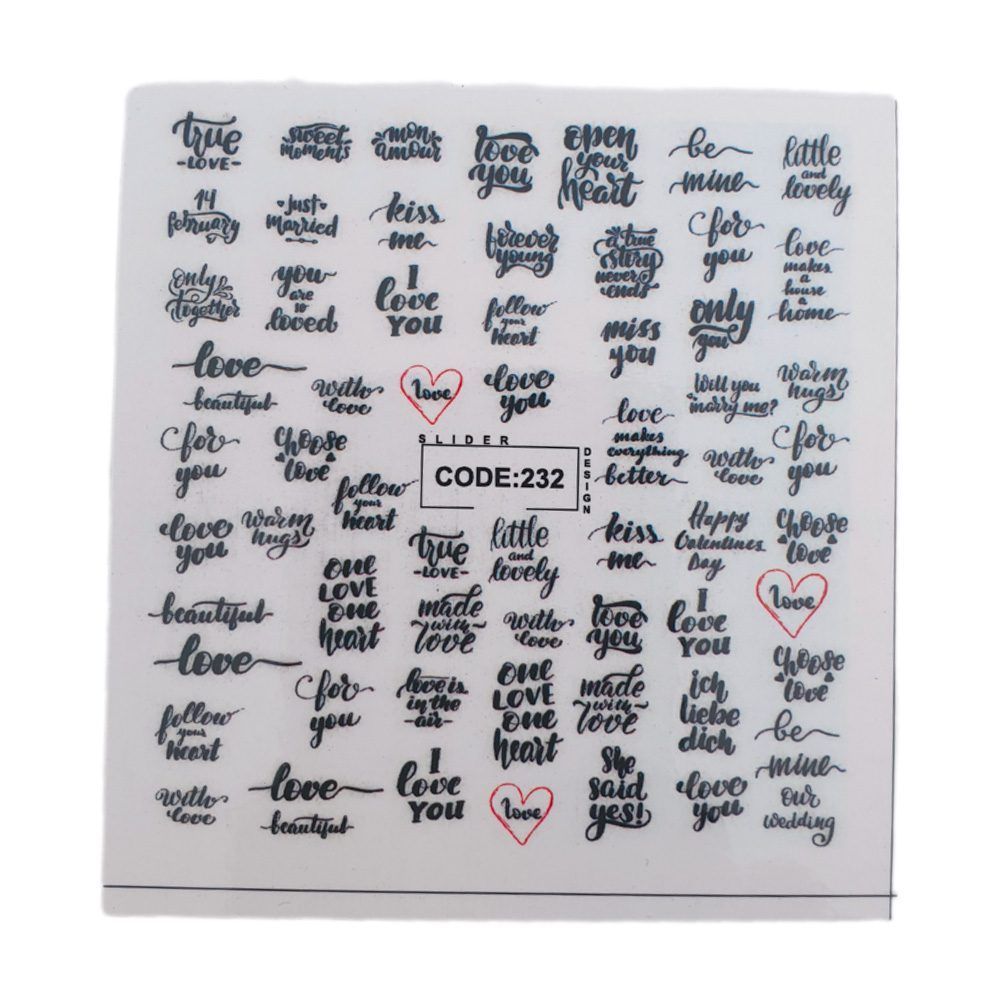 true
-LOVE-
sweet
moments
mon
amour
love
you
open
your
heart
be
mine
little
and
lovely
14
february
just
married
kiss
me
forever
young
a true
story
never
ends
for
you
love
makes
a
house
a
home
only
together
you
are
so
loved
I
love
YOU
follow
your
heart
miss
you
only
you
love
beautiful
with
love
love
love
you
love
makes
everything
better
Will you
marry me?
warm
hugs
for
you
choose
love
follow
your
heart
SLIDER
CODE:232
DESIGN
with
love
for
you
love
you
warm
hugs
one
LOVE
one
heart
true
-LOVE-
little
and
lovely
kiss
me
Happy
Valentines
Day
choose
love
beautiful
love
made
with
love
with
love
love
you
I
love
YOU
love
follow
your
heart
for
you
love is
in the
-air-
one
LOVE
one
heart
made
with
love
ich
liebe
dich
choose
love
be
mine
with
love
love
beautiful
I
love
YOU
love
she
said
yes!
love
you
our
wedding